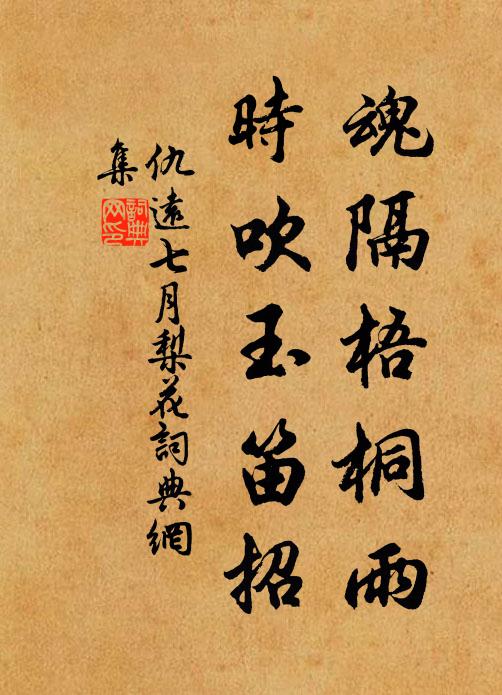 魂隔梧桐雨
時吹玉笛招
仇遠七月梨花詞典網
集
詞典
网印